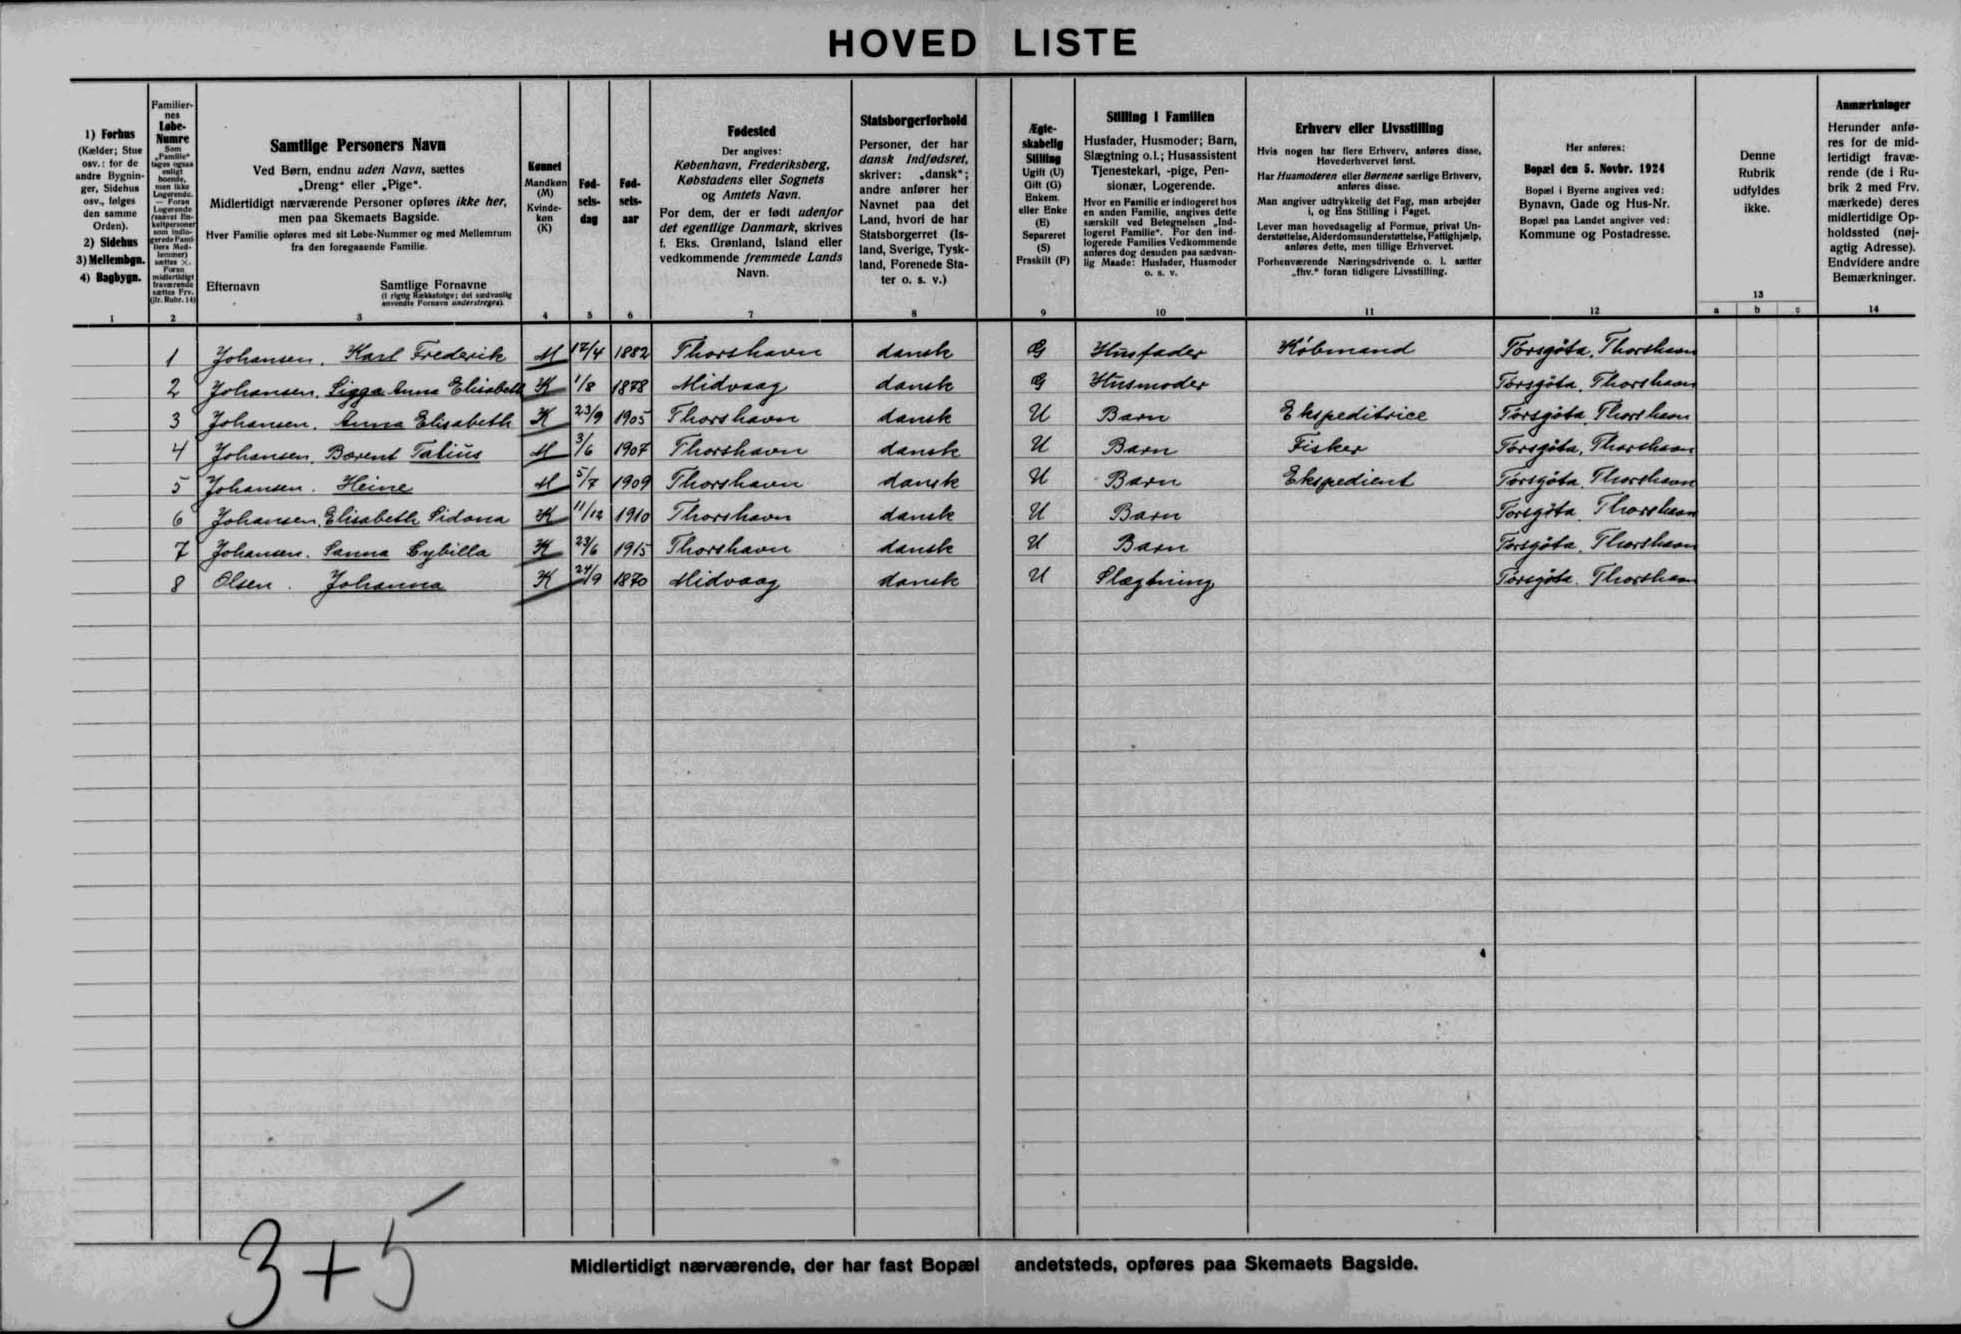 HOVED LISTE
1) Forhus
(Kælder; Stue
osv.: for de
andre Bygnin-
ger, Sidehus
osv., følges
den samme
Orden).
2) Sidehus
3) Mellembgn.
4) Bagbygn.
1
Familier-
nes
Løbe-
Numre
Som
„Familie“
tages ogsaa
enligt
boende,
men ikke
Logerende.
— Foran
Logerende
(saavel En-
keltpersoner
som indlo-
gerede Fami-
liers Med-
lemmer)
sættes ×.
Foran
midlertidigt
fraværende
sættes Frv.
(jfr. Rubr. 14)
2
Samtlige Personers Navn
Ved Børn, endnu uden Navn, sættes
„Dreng“ eller „Pige“.
Midlertidigt nærværende Personer opføres ikke her,
men paa Skemaets Bagside.
Hver Familie opføres med sit Løbe-Nummer og med Mellemrum
fra den foregaaende Familie.
Efternavn
Samtlige Fornavne
(i rigtig Rækkefølge; det sædvanlig
anvendte Fornavn understreges).
3
Kønnet
Mandkøn
(M)
Kvinde-
køn
(K)
4
Fød-
sels-
dag
5
Fød-
sels-
aar
6
Fødested
Der angives:
København, Frederiksberg,
Købstadens eller Sognets
og Amtets Navn.
For dem, der er født udenfor
det egentlige Danmark, skrives
f. Eks. Grønland, Island eller
vedkommende fremmede Lands
Navn.
7
Statsborgerforhold
Personer, der har
dansk Indfødsret,
skriver: „dansk“;
andre anfører her
Navnet paa det
Land, hvori de har
Statsborgerret (Is-
land, Sverige, Tysk-
land, Forenede Sta-
ter o. s. v.)
8
Ægte-
skabelig
Stilling
Ugift (U)
Gift (G)
Enkem.
eller Enke
(E)
Separeret
(S)
Fraskilt (F)
9
Stilling i Familien
Husfader, Husmoder; Barn,
Slægtning o.l.; Husassistent
Tjenestekarl, -pige, Pen-
sionær, Logerende.
Hvor en Familie er indlogeret hos
en anden Familie, angives dette
særskilt ved Betegnelsen „Ind-
logeret Familie“. For den ind-
logerede Families Vedkommende
anføres dog desuden paa sædvan-
lig Maade: Husfader, Husmoder
o. s. v.
10
Erhverv eller Livsstilling
Hvis nogen har flere Erhverv, anføres disse,
Hovederhvervet først.
Har Husmoderen eller Børnene særlige Erhverv,
anføres disse.
Man angiver udtrykkelig det Fag, man arbejder
i, og Ens Stilling i Faget.
Lever man hovedsagelig af Formue, privat Un-
derstøttelse, Alderdomsunderstøttelse, Fattighjælp,
anføres dette, men tillige Erhvervet.
Forhenværende Næringsdrivende o. l. sætter
„fhv.“ foran tidligere Livsstilling.
11
Her anføres:
Bopæl den 5. Novbr. 1924
Bopæl i Byerne angives ved:
Bynavn, Gade og Hus-Nr.
Bopæl paa Landet angiver ved:
Kommune og Postadresse.
12
Denne
Rubrik
udfyldes
ikke.
13
a b c
Anmærkninger
Herunder anfø-
res for de mid-
lertidigt fravæ-
rende (de i Ru-
brik 2 med Frv.
mærkede) deres
midlertidige Op-
holdssted (nøj-
agtig Adresse).
Endvidere andre
Bemærkninger.
14
1 Johansen. Karl Frederik M 17/4 1882 Thorshavn dansk G Husfader Købmand Torsgøta, Thorshavn
2 Johansen. Sigga Anna Elisabeth K 1/8 1878 Midvaag dansk G Husmoder Torsgøta, Thorshavn
3 Johansen. Anna Elisabeth K 23/9 1905 Thorshavn dansk U Barn Ekspeditrice Torsgøta, Thorshavn
4 Johansen. Barent Tatius M 3/6 1907 Thorshavn dansk U Barn Fisker Torsgøta, Thorshavn
5 Johansen. Heine M 5/7 1909 Thorshavn dansk U Barn Ekspedient Torsgøta, Thorshavn
6 Johansen. Elisabeth Sidona K 11/12 1910 Thorshavn dansk U Barn Torsgøta, Thorshavn
7 Johansen. Sanna Cybilla K 23/6 1915 Thorshavn dansk U Barn Torsgøta, Thorshavn
8 Olsen. Johanna K 24/9 1870 Midvaag dansk U Slægtning Torsgøta, Thorshavn
3+5
Midlertidigt nærværende, der har fast Bopæl andetsteds, opføres paa Skemaets Bagside.